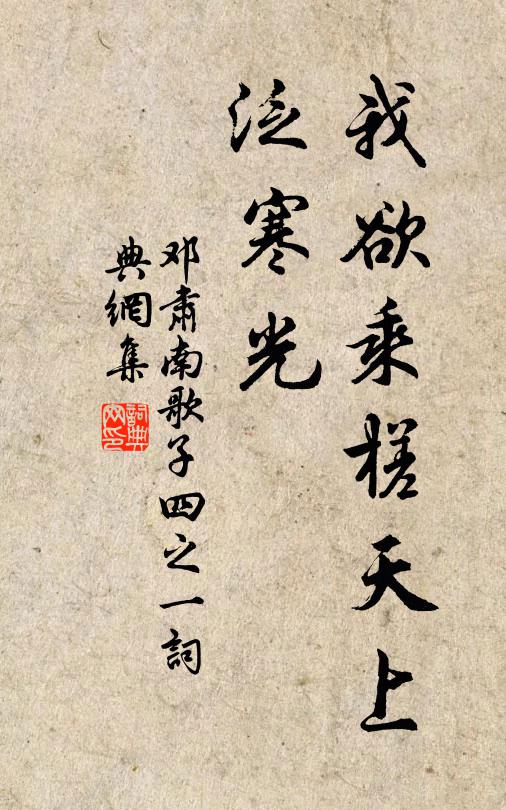 我欲乘槎天上
泛寒光
邓肃南歌子四之一詞
典網集
詞典
网印